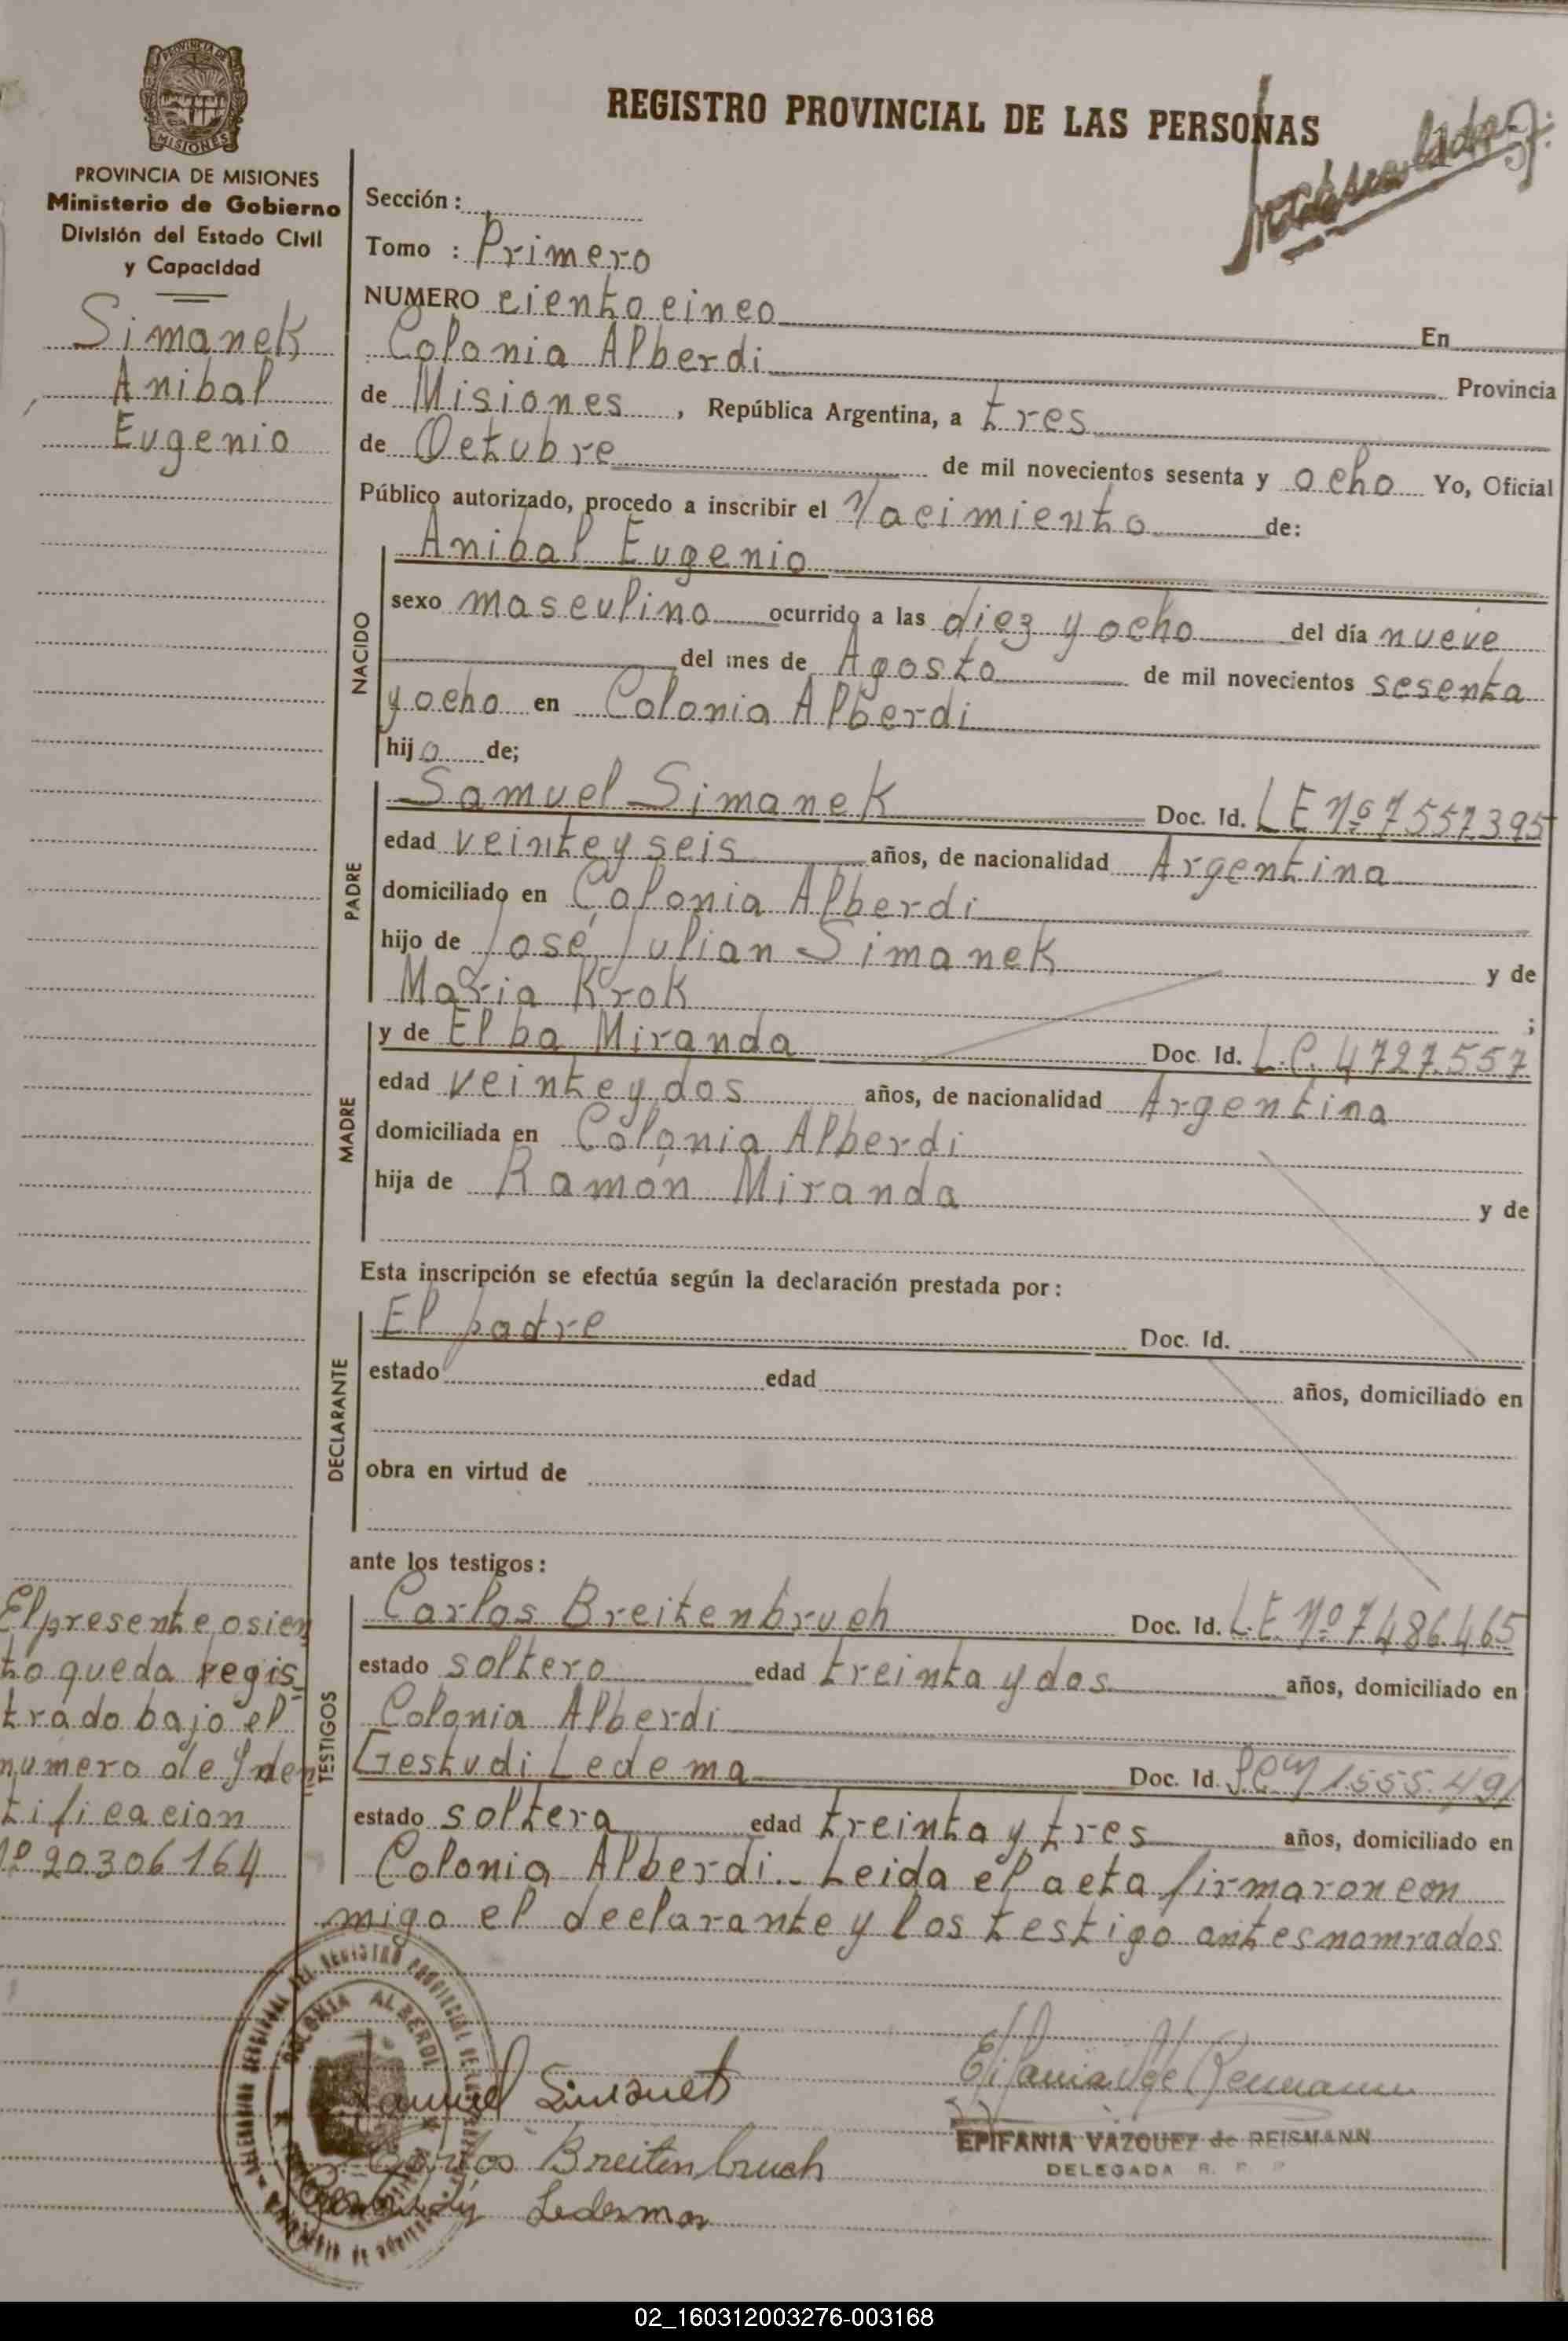 REGISTRO PROVINCIAL DE LAS PERSONAS
PROVINCIA DE MISIONES
Ministerio de Gobierno
División del Estado Civil
y Capacidad
Simanek
Anibal
Eugenio
Sección :
Tomo : Primero
NUMERO ciento cinco En
Colonia Alberdi Provincia
de Misiones , República Argentina, a tres
de Octubre de mil novecientos sesenta y ocho Yo, Oficial
Público autorizado, procedo a inscribir el Nacimiento de:
NACIDO
Anibal Eugenio
sexo masculino ocurrido a las diez y ocho del día nueve
del mes de Agosto de mil novecientos sesenta
y ocho en Colonia Alberdi
hijo de;
PADRE
Samuel Simanek Doc. Id. L E Nº 7557395
edad veinte y seis años, de nacionalidad Argentina
domiciliado en Colonia Alberdi
hijo de José Julian Simanek y de
Maria Krok ;
MADRE
y de Elba Miranda Doc. Id. L.C. 4727.557
edad veinte y dos años, de nacionalidad Argentina
domiciliada en Colonia Alberdi
hija de Ramón Miranda y de
Esta inscripción se efectúa según la declaración prestada por :
DECLARANTE
El padre Doc. Id.
estado edad años, domiciliado en
obra en virtud de
ante los testigos :
TESTIGOS
Carlos Breitenbruch Doc. Id. L.E. Nº 7.486.465
estado soltero edad treinta y dos años, domiciliado en
Colonia Alberdi
Gestudi Ledema Doc. Id. 1.555.491
estado soltera edad treinta y tres años, domiciliado en
Colonia Alberdi.- Leida el acta firmaron con
migo el declarante y los testigo antes nomrados
El presente asien
to queda regis
trado bajo el
numero de Iden
tificacion
Nº 20.306.164
COLONIA ALBERDI
Samuel Simanek
Carlos Breitenbruch
Ledesma
EPIFANIA VAZQUEZ de REISMANN
DELEGADA R. P. P.
02_160312003276-003168